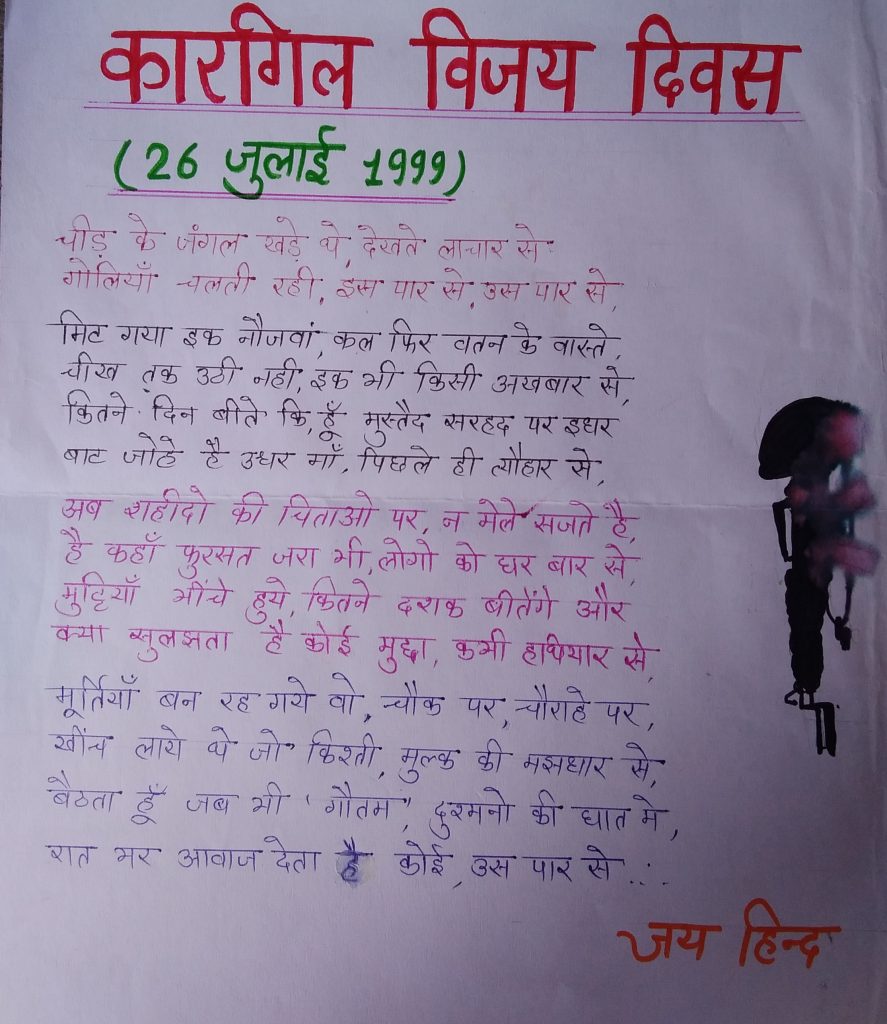 कारगिल विजय दिवस
(26 जुलाई 1999)
चीड़ के जंगल खड़े थे, देखते लाचार से
गोलियाँ चलती रही, इस पार से, उस पार से,
मिट गया इक नौजवां, कल फिर वतन के वास्ते,
चीख तक उठी नही, इक भी किसी अखबार से,
कितने दिन बीते कि, हूँ मुस्तैद सरहद पर इधर
बाट जोहे है उधर माँ, पिछले ही त्यौहार से,
अब शहीदो की चिताओ पर, न मेले सजते है,
है कहाँ फुरसत जरा भी, लोगो को घर बार से,
मुट्टियाँ भींचे हुये, कितने दशक बीतेंगे और
क्या सुलझता है कोई मुद्दा, कभी हथियार से,
मूर्तियाँ बन रह गये वो, चौक पर, चौराहे पर,
खींच लाये थे जो किश्ती, मुल्क की मझधार से,
बैठता हूँ जब भी 'गौतम', दुश्मनो की घात मे,
रात भर आवाज देता है कोई, उस पार से...
जय हिन्द